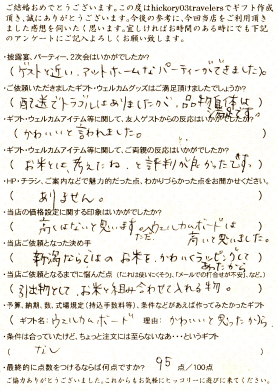 ご結婚おめでとうございます。この度はhickory03travelersでギフト作成
頂き、誠にありがとうございます。今後の参考に、今回当店をご利用頂き
ました感想を伺いたく思います。宜しければお時間のある時にでも下記
のアンケートにご記入よろしくお願い致します。
・披露宴、パーティー、2次会はいかがでしたか?
(ゲストと近い、アットホームなパーティーができました)
・ご依頼いただきましたギフト・ウェルカムグッズはご満足頂けましたでしょうか?
(配送でトラブルはありましたが、品物自体は満足です。)
・ギフト・ウェルカムアイテム等に関して、友人ゲストからの反応はいかがでしたか?
(かわいいと言われました。)
・ギフト・ウェルカムアイテム等に関して、ご両親の反応はいかがでしたか?
(お米とは、考えたね、と評判が良かったです。)
・HP・チラシ、ご案内などで魅力的だった点、わかりづらかった点をお聞かせください。
(ありません。)
・当店の価格設定に関する印象はいかがでしたか?
(高くはないと思います。ただ、ウェルカムボードは高いと思いました。)
・当店ご依頼となった決め手
(新潟ならではのお米を、かわいくラッピングしてあったから)
・当店ご依頼となるまでに悩んだ点(「これは使いにくそう」、「メールでの打合せが不安」、など)
(引出物として、お米と組み合わせて入れる物。)
・予算、納期、数、式場規定(持込手数料等)、条件などがあえば作ってみたかったギフト
(ギフト名:ウェルカムボード 理由:かわいいと思ったから。)
・条件は合っていたけど、ちょっと注文には至らないなあ・・・というギフト
(なし)
・最終的に点数をつけるならば何点ですか? 95 点/100点
ご協力ありがとうございました。これからもお気軽にヒッコリーに遊びに来てください。